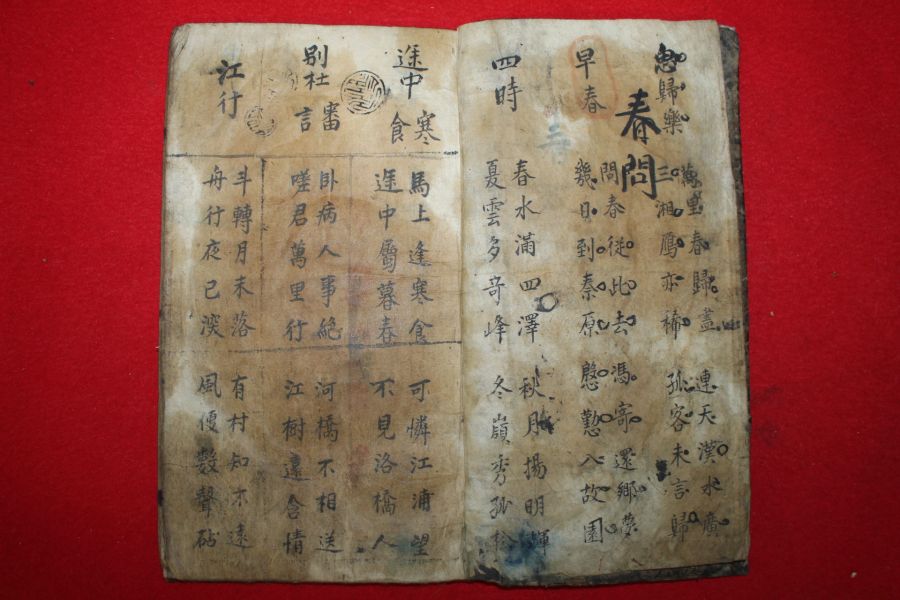 思歸樂
春問
萬里春歸盡
三湘鴈亦稀
連天漢水廣
孤客未言歸
早春
問春從此去
幾日到秦原
馮寄還鄉夢
慇懃入故園
四時
春水滿四澤
夏雲多奇峰
秋月揚明輝
冬嶺秀孤松
途中寒食
馬上逢寒食
途中屬暮春
可憐江浦望
不見洛橋人
別杜審言
臥病人事絕
嗟君萬里行
河橋不相送
江樹遠含情
江行
斗轉月未落
舟行夜已深
有村知不遠
風便數聲砧